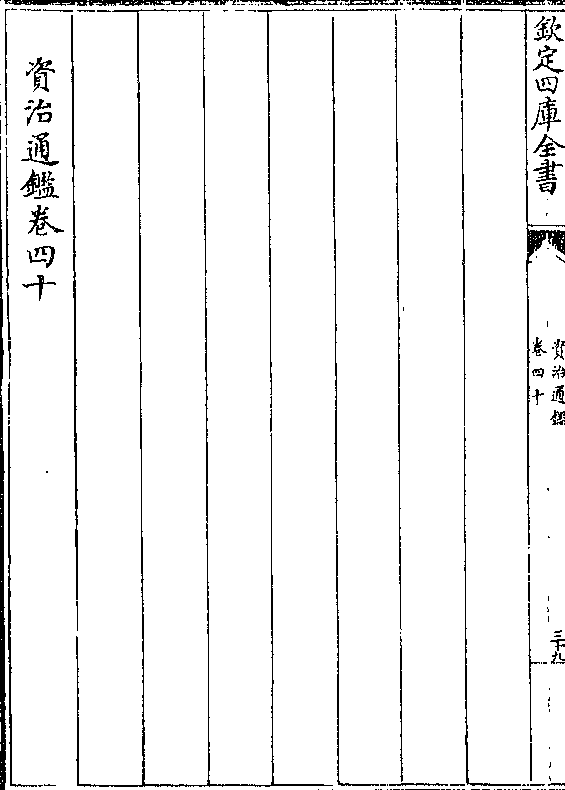 欽定四庫全書
資治通鑑
卷四十
三十九
資治通鑑卷四十